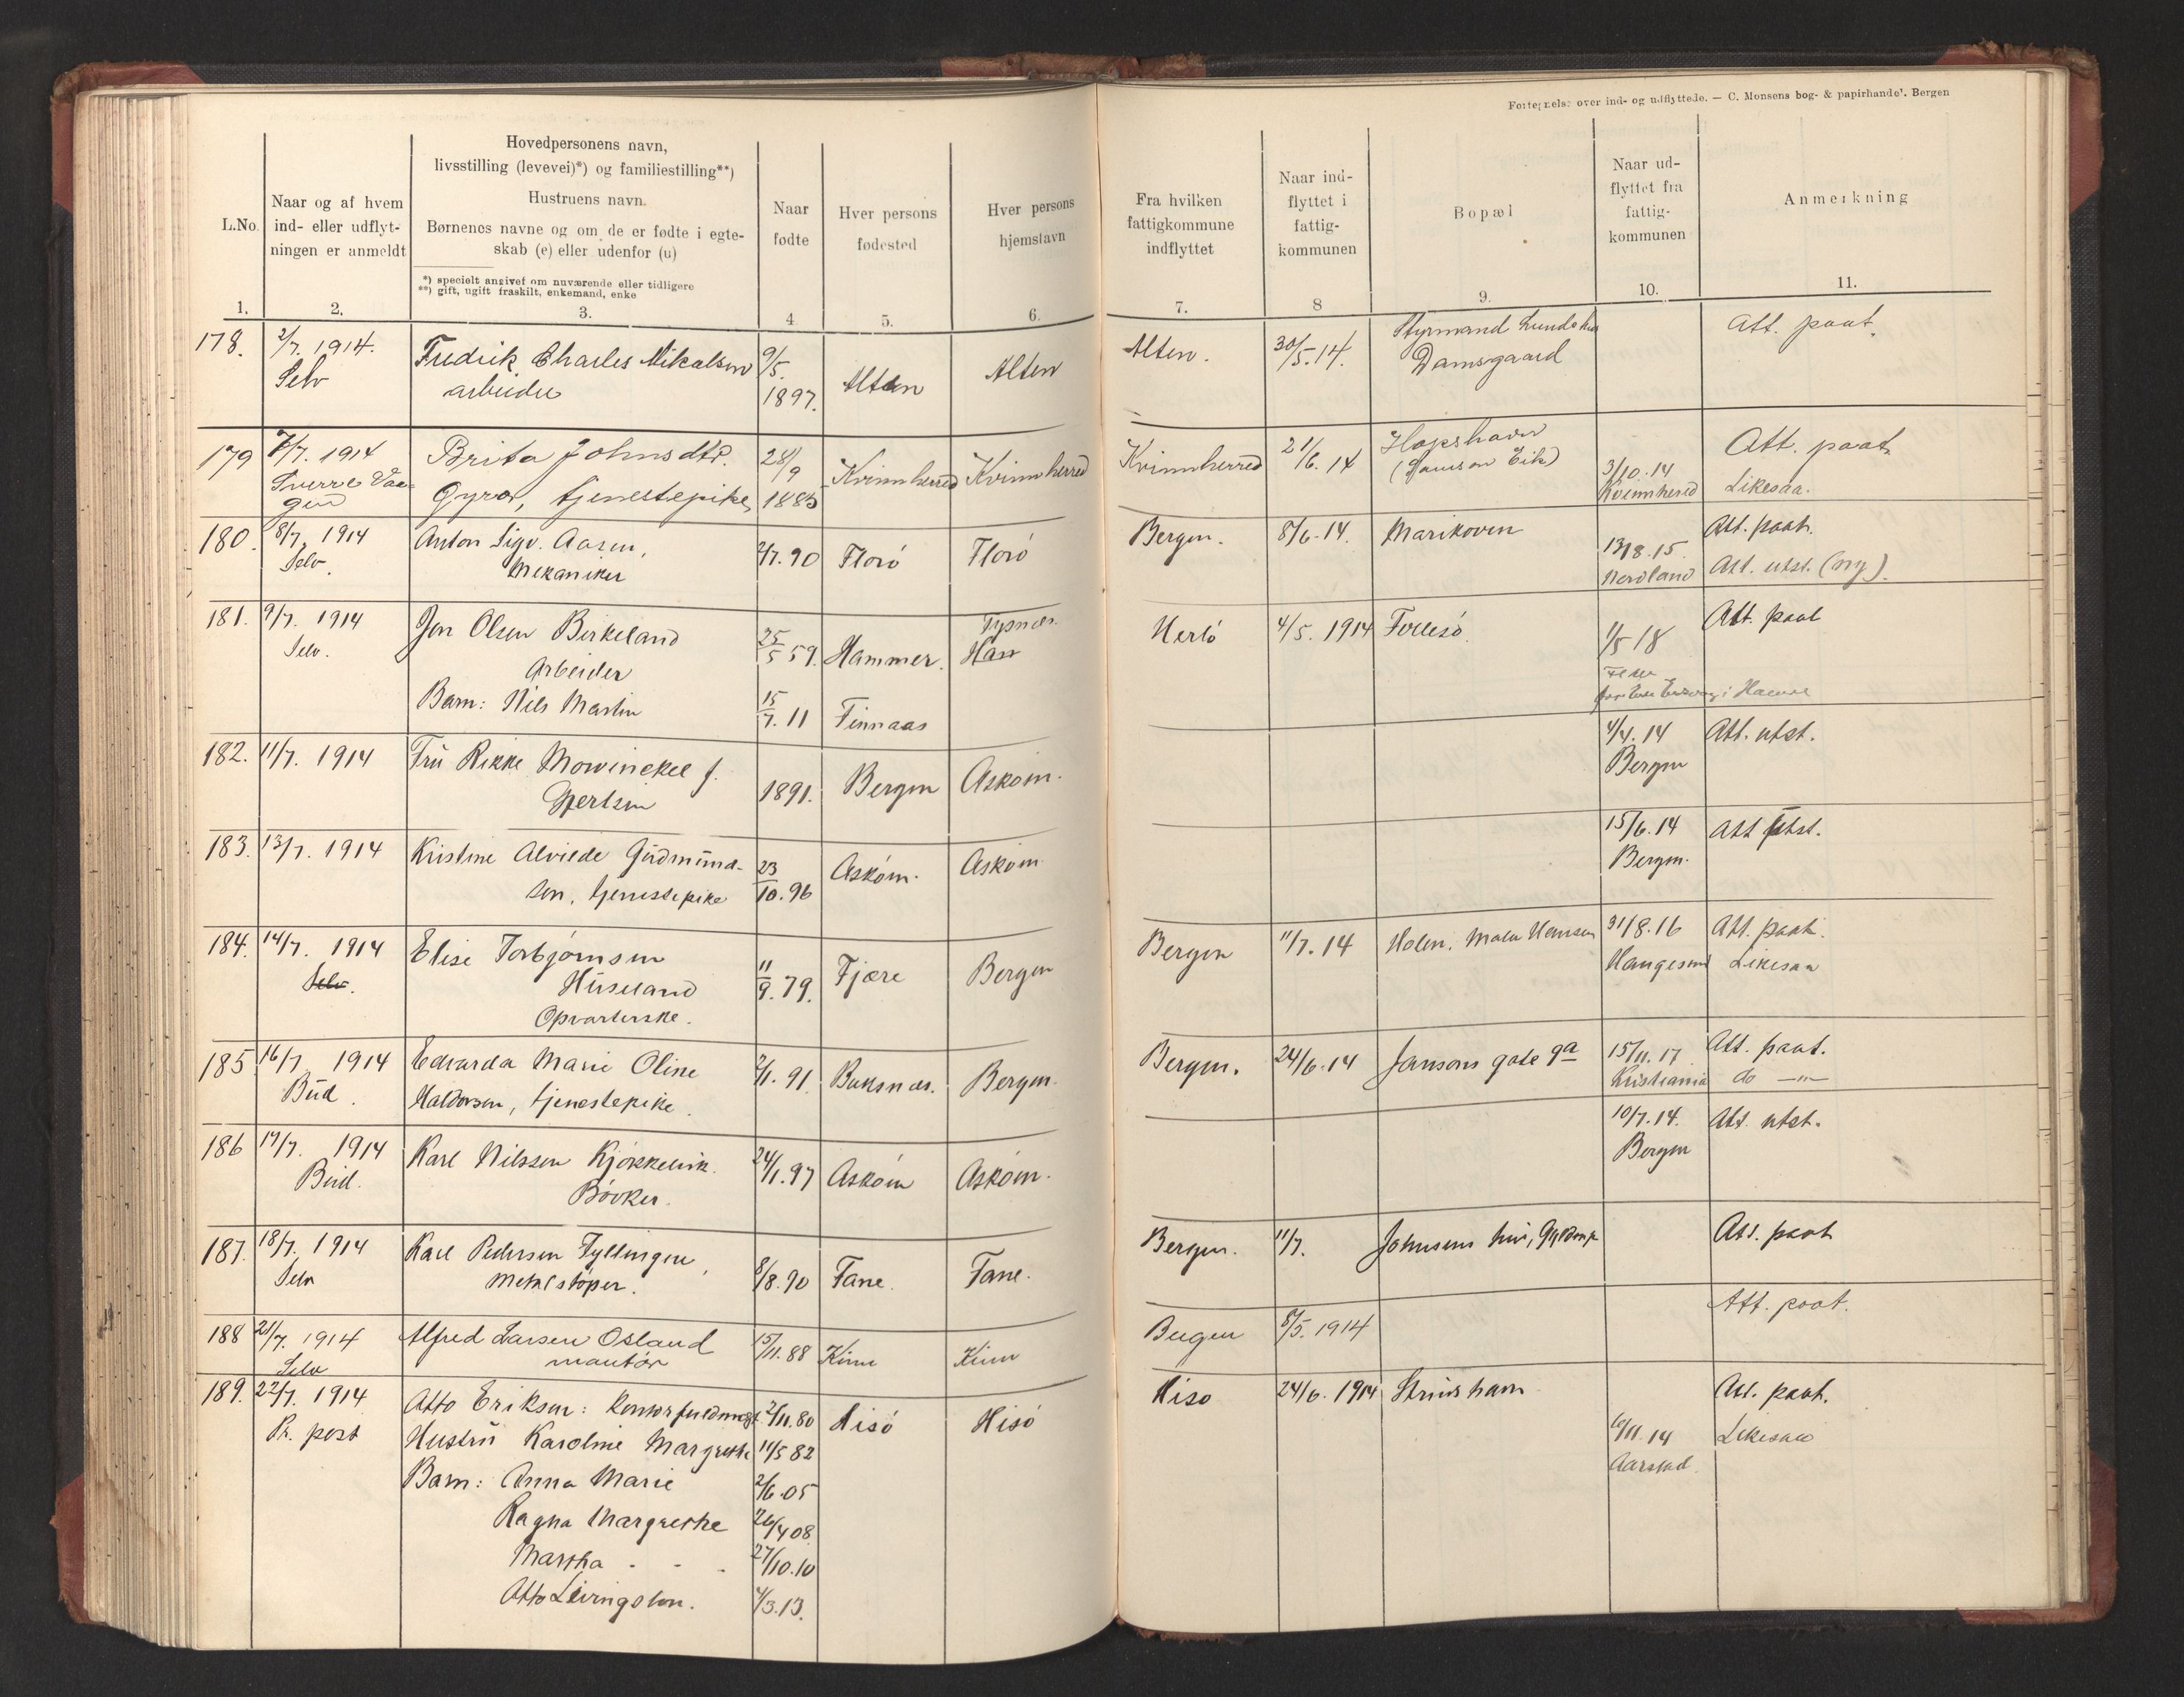 Fortegnelse over ind- og udflyttede. — C. Monsens bog- & papirhandel. Bergen
L.No.
Naar og af hvem
ind- eller udflyt-
ningen er anmeldt
Hovedpersonens navn,
livsstilling (levevei)*) og familiestilling**)
Hustruens navn.
Børnenes navne og om de er fødte i egte-
skab (e) eller udenfor (u)
*) specielt angivet om nuværende eller tidligere
**) gift, ugift fraskilt, enkemand, enke
Naar
fødte
Hver persons
fødested
Hver persons
hjemstavn
Fra hvilken
fattigkommune
indflyttet
Naar ind-
flyttet i
fattig-
kommunen
Bopæl
Naar ud-
flyttet fra
fattig-
kommunen
Anmerkning
1. 2. 3. 4 5. 6. 7. 8 9. 10. 11.
178. 2/7. 1914. Fredrik Charles Mikalsen 9/5. Alten Alten Alten. 30/5.14. Styrmand Lunds hus Att. paat.
Selv arbeider 1897. Damsgaard
179 7/7. 1914 Brita Johnsdtr. 28/9 Kvinnherred Kvinnherred Kvinnherred 21/6. 14 Hopshavn Att. paat.
Sverre Vaa- Gyra, tjenestepike 1885 3/10.14 Likesaa.
gen Kvinnherred
180. 8/7. 1914 Anton Sigv. Aasen, 2/7. 90 Florö Florö Bergen. 8/6.14. Marikoven 13/8.15. Att. paat.
Selv. Mekaniker Nordland Att. utst. (ny).
181. 9/7. 1914 Jon Olsen Birkeland 25/5 59. Hammer. Tysnes. Herlö 4/5. 1914 Follesö 1/5 18 Att. paat
Selv. Arbeider
Barn: Nils Martin 15/7. 11 Finnaas
182. 11/7. 1914 Fru Rikke Mowinckel f. 1891. Bergen Asköen. 4/4. 14 Att. utst.
Gjertsen Bergen
183. 13/7. 1914 Kristine Alvilde Gudmund- 23/10.96 Asköen. Asköen 15/6.14 Att utst.
sen, tjenestepike Bergen.
184. 14/7. 1914 Elise Torbjörnsen 11/9. 79. Fjære Bergen Bergen 11/7. 14 Holen, Hansen 31/8.16 Att. paat.
Selv. Huseland Haugesund Likesaa
Opvarterske.
185 16/7. 1914 Edvarda Marie Oline 2/1. 91. Buksnes. Bergen. Bergen. 24/6.14 Jansons gate 9a 15/11.17 Att. paat.
Bud. Haldorsen, tjenestepike. Kristiania do —"—
186 17/7. 1914 Karl Nilssen Kjökkelvik. 24/1.97 Asköen Asköen. 10/7.14. Att. utst.
Bud. Bövker. Bergen
187. 18/7. 1914 Karl Pedersen Fyllingen, 8/8.90 Fane. Fane. Bergen. 11/7. Johnsens hus, Att. paat
Selv Metalstöper.
188 21/7. 1914 Alfred Larsen Osland 15/11.88 Kinn Kinn Bergen 8/5. 1914 Att. paat.
Selv montör
189. 22/7. 1914 Otto Eriksen: Kontorfuldmægt. 2/11.80 Hisö Hisö Hisö 24/6. 1914 Strusham Att. paat.
Pr. post Hustru Karoline Margrethe 14/5 82 6/11.14 Likesaa
Barn: Anna Marie 2/6.05 Aarstad.
Ragna Margrethe 26/4 08
Martha - - - 27/10.10
Otto Livingston. 4/3.13.